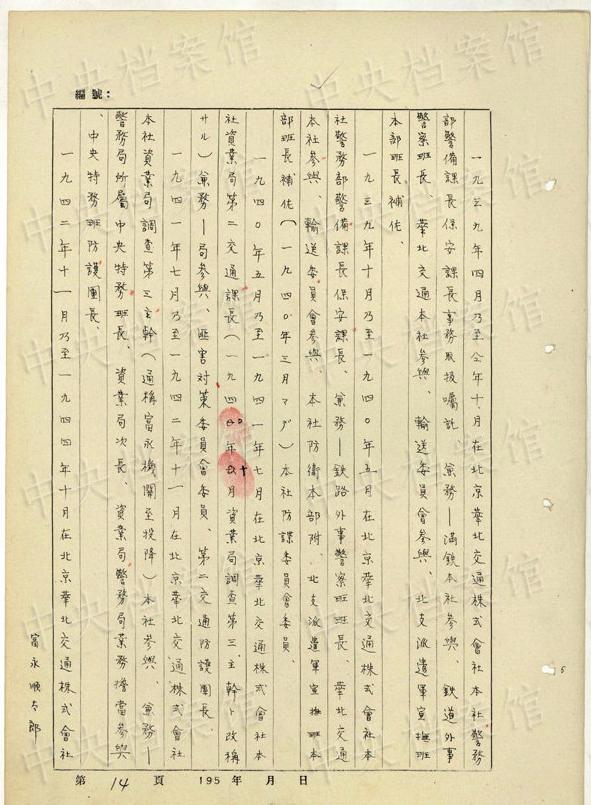 編號：
一九三九年四月乃至仝年十月在北京華北交通株式會社本社警務
部警備課長保安課長事務取扱囑託 兼務―滿鉄本社参與、鉄道外事
警察班長、華北交通本社参與、輸送委員會参與、北支派遣軍宣撫班
本部班長補佐、
一九三九年十月乃至一九四〇年五月在北京華北交通株式會社本
社警務部警備課長保安課長、兼務―鉄路外事警察班班長、華北交通
本社参與、輸送委員會参與、本社防衛本部附、北支派遣軍宣撫班本
部班長補佐(一九四〇年三月マデ)本社防諜委員會委員、
一九四〇年五月乃至一九四一年七月在北京華北交通株式會社本
社資業局第二交通課長(一九四〇年十月資業局調査第三主幹ト改稱
サル)兼務―局参與、匪害対策委員會委員、第二交通防護團長
一九四一年七月乃至一九四二年十一月在北京華北交通株式會社
本社資業局調査第三主幹(通稱富永機關至投降)本社参與、兼務―
警務局所屬中央特務班長、資業局次長、資業局警務局業務擔當参與
、中央特務班防護團長、
一九四二年十一月乃至一九四四年十月在北京華北交通株式會社
富永順太郎
第 14 頁 195 年 月 日
5
中央档案馆